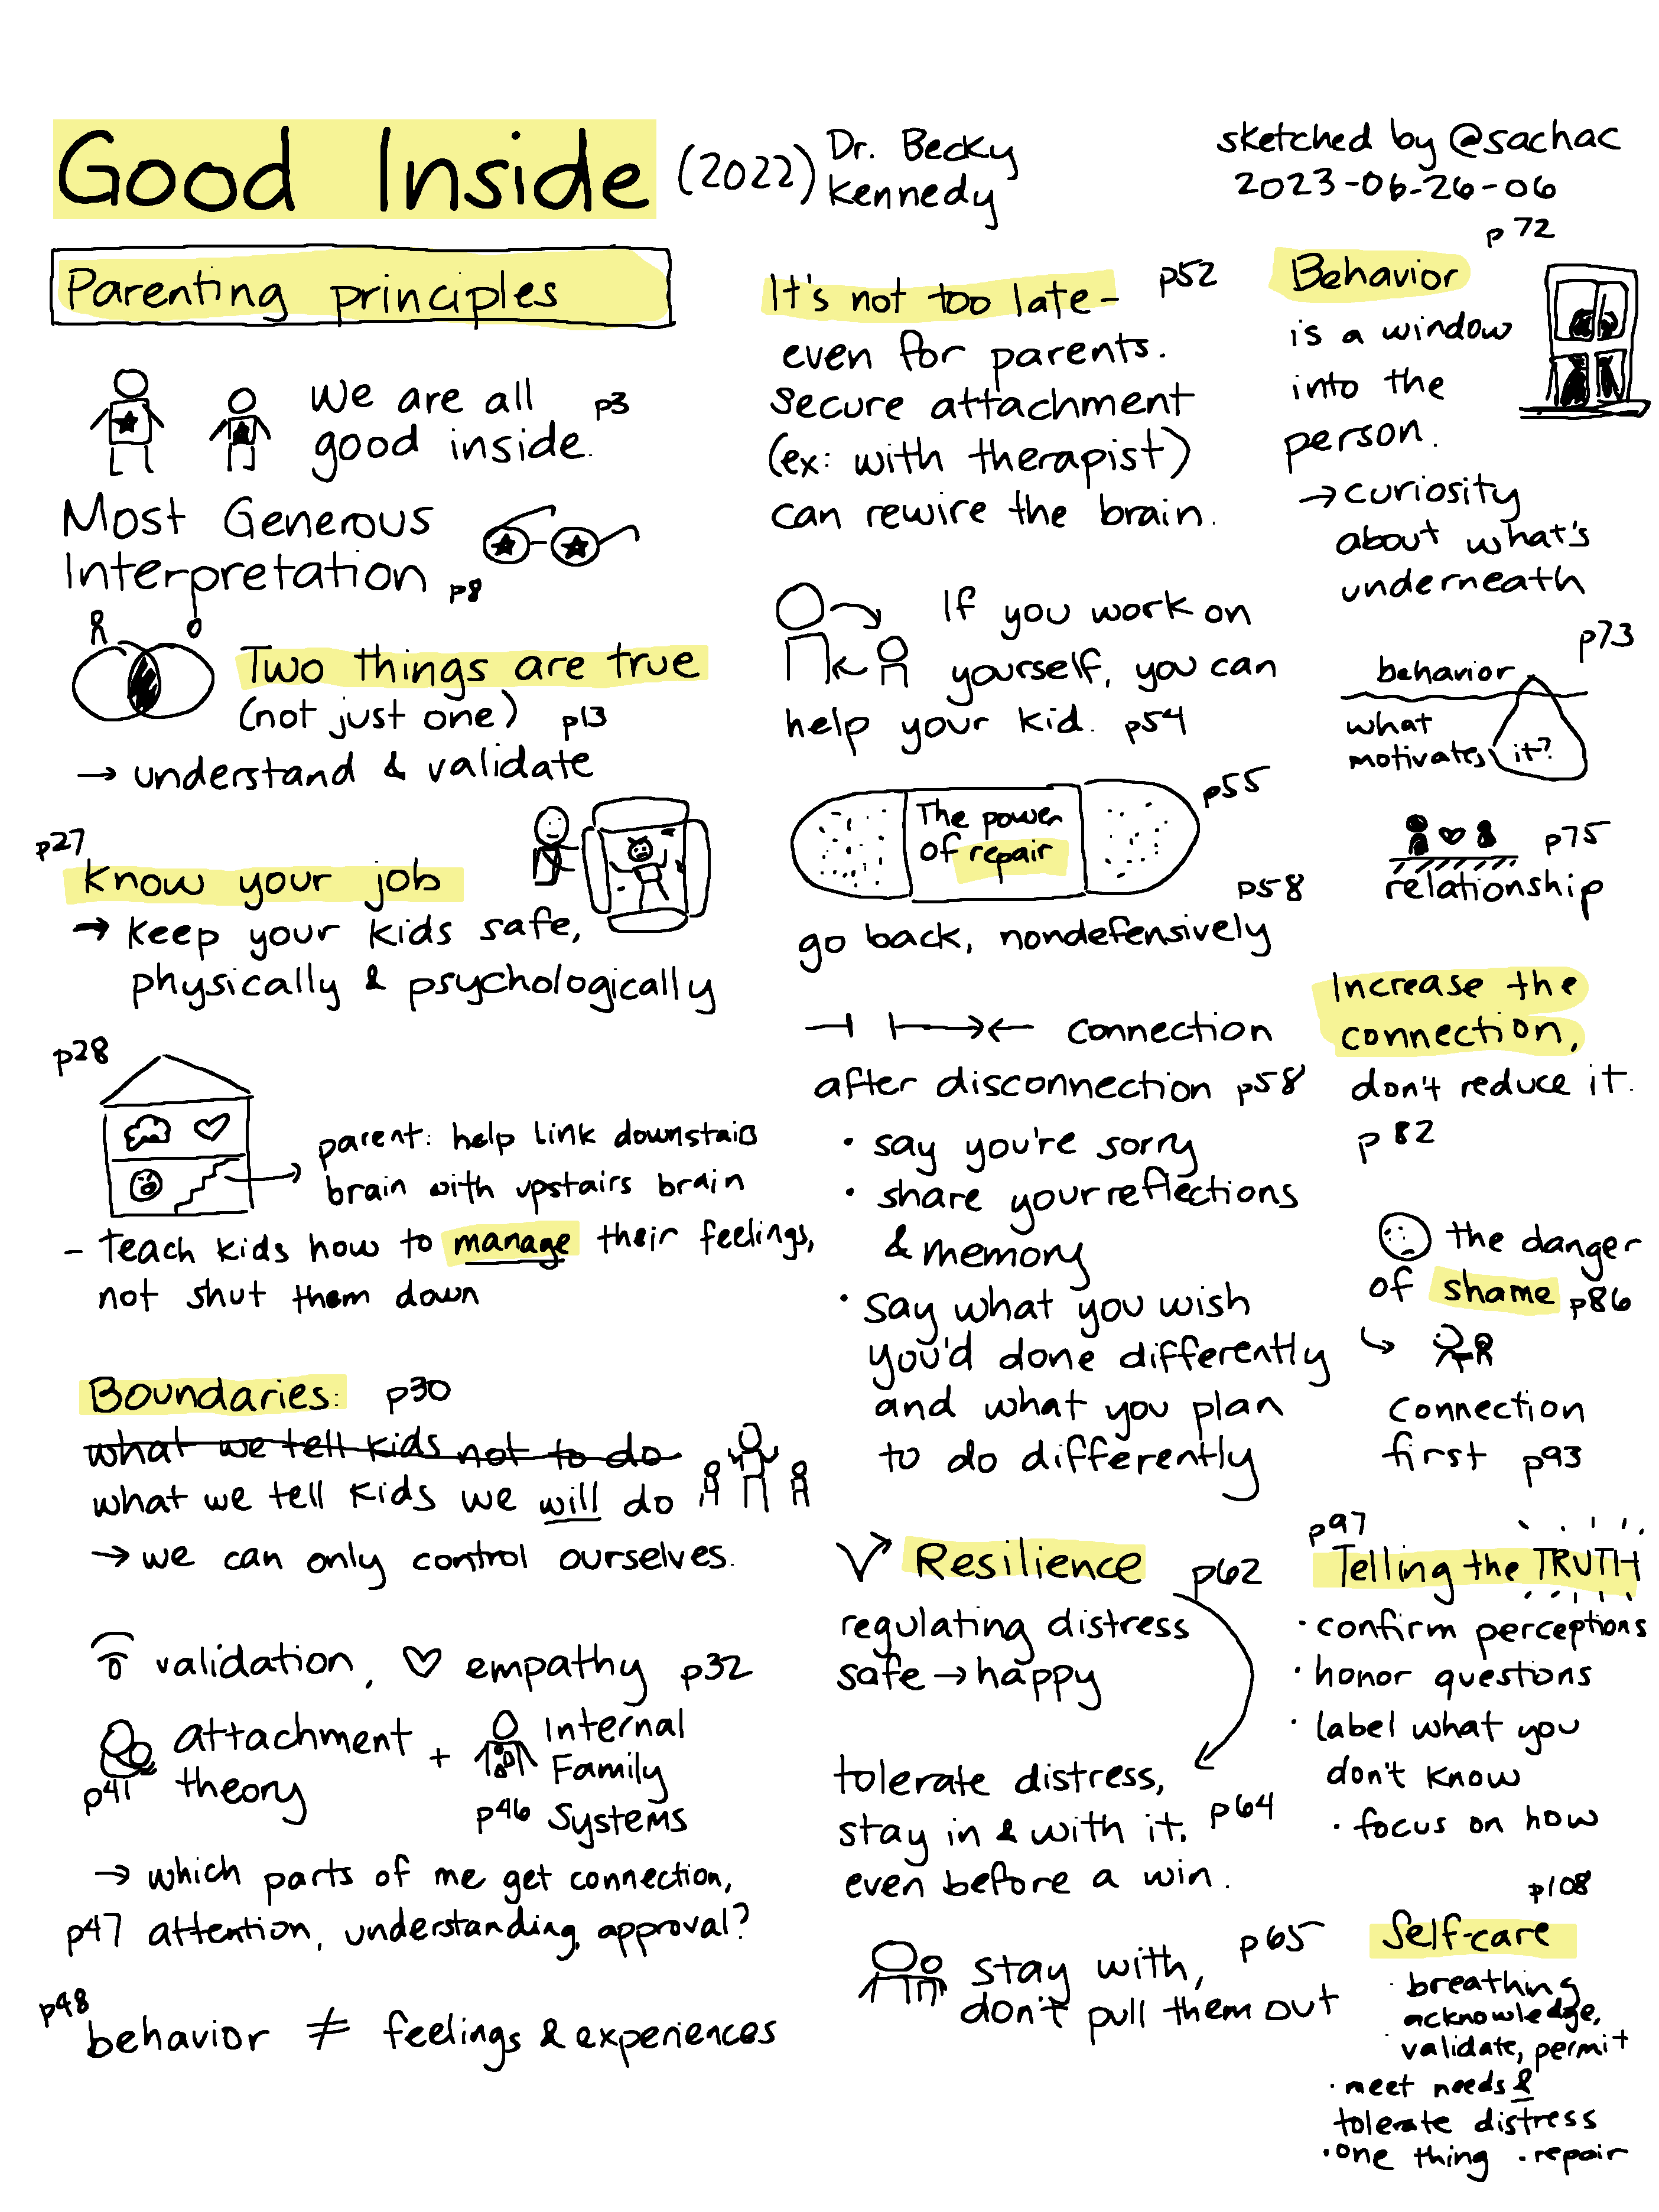 Good Inside (2022) Dr. Becky
Kennedy
sketched by @sachac
2023-06-26-06
Parenting principles
We are all
good inside. p3
Most Generous
Interpretation p8
Two things are true
(not just one) p13
→ understand & validate
p27
Know your job
→ keep your kids safe,
physically & psychologically
p28
parent: help link downstairs
brain with upstairs brain
- teach kids how to manage their feelings,
not shut them down
Boundaries: p30
what we tell kids not to do
what we tell kids we will do
→ we can only control ourselves.
validation, ♡ empathy p32
attachment
theory
p41
+
Internal
Family
Systems
p46
→ which parts of me get connection,
p47 attention, understanding, approval?
p48
behavior ≠ feelings & experiences
It's not too late - p52
even for parents.
secure attachment
(ex: with therapist)
can rewire the brain.
If you work on
yourself, you can
help your kid. p54
The power
of repair
p55
p58
go back, nondefensively
connection
after disconnection p58
• say you're sorry
• share your reflections
& memory
• say what you wish
you'd done differently
and what you plan
to do differently
Resilience p62
regulating distress
safe → happy
tolerate distress,
stay in & with it, p64
even before a win.
stay with, p65
don't pull them out
p72
Behavior
is a window
into the
person.
→ curiosity
about what's
underneath
p73
behavior
what
motivates it?
p75
relationship
Increase the
connection,
don't reduce it.
p82
the danger
of shame p86
connection
first p93
p97
Telling the TRUTH
• confirm perceptions
• honor questions
• label what you
don't know
• focus on how
p108
Self-care
• breathing
acknowledge,
validate, permit
• meet needs &
tolerate distress
• one thing • repair